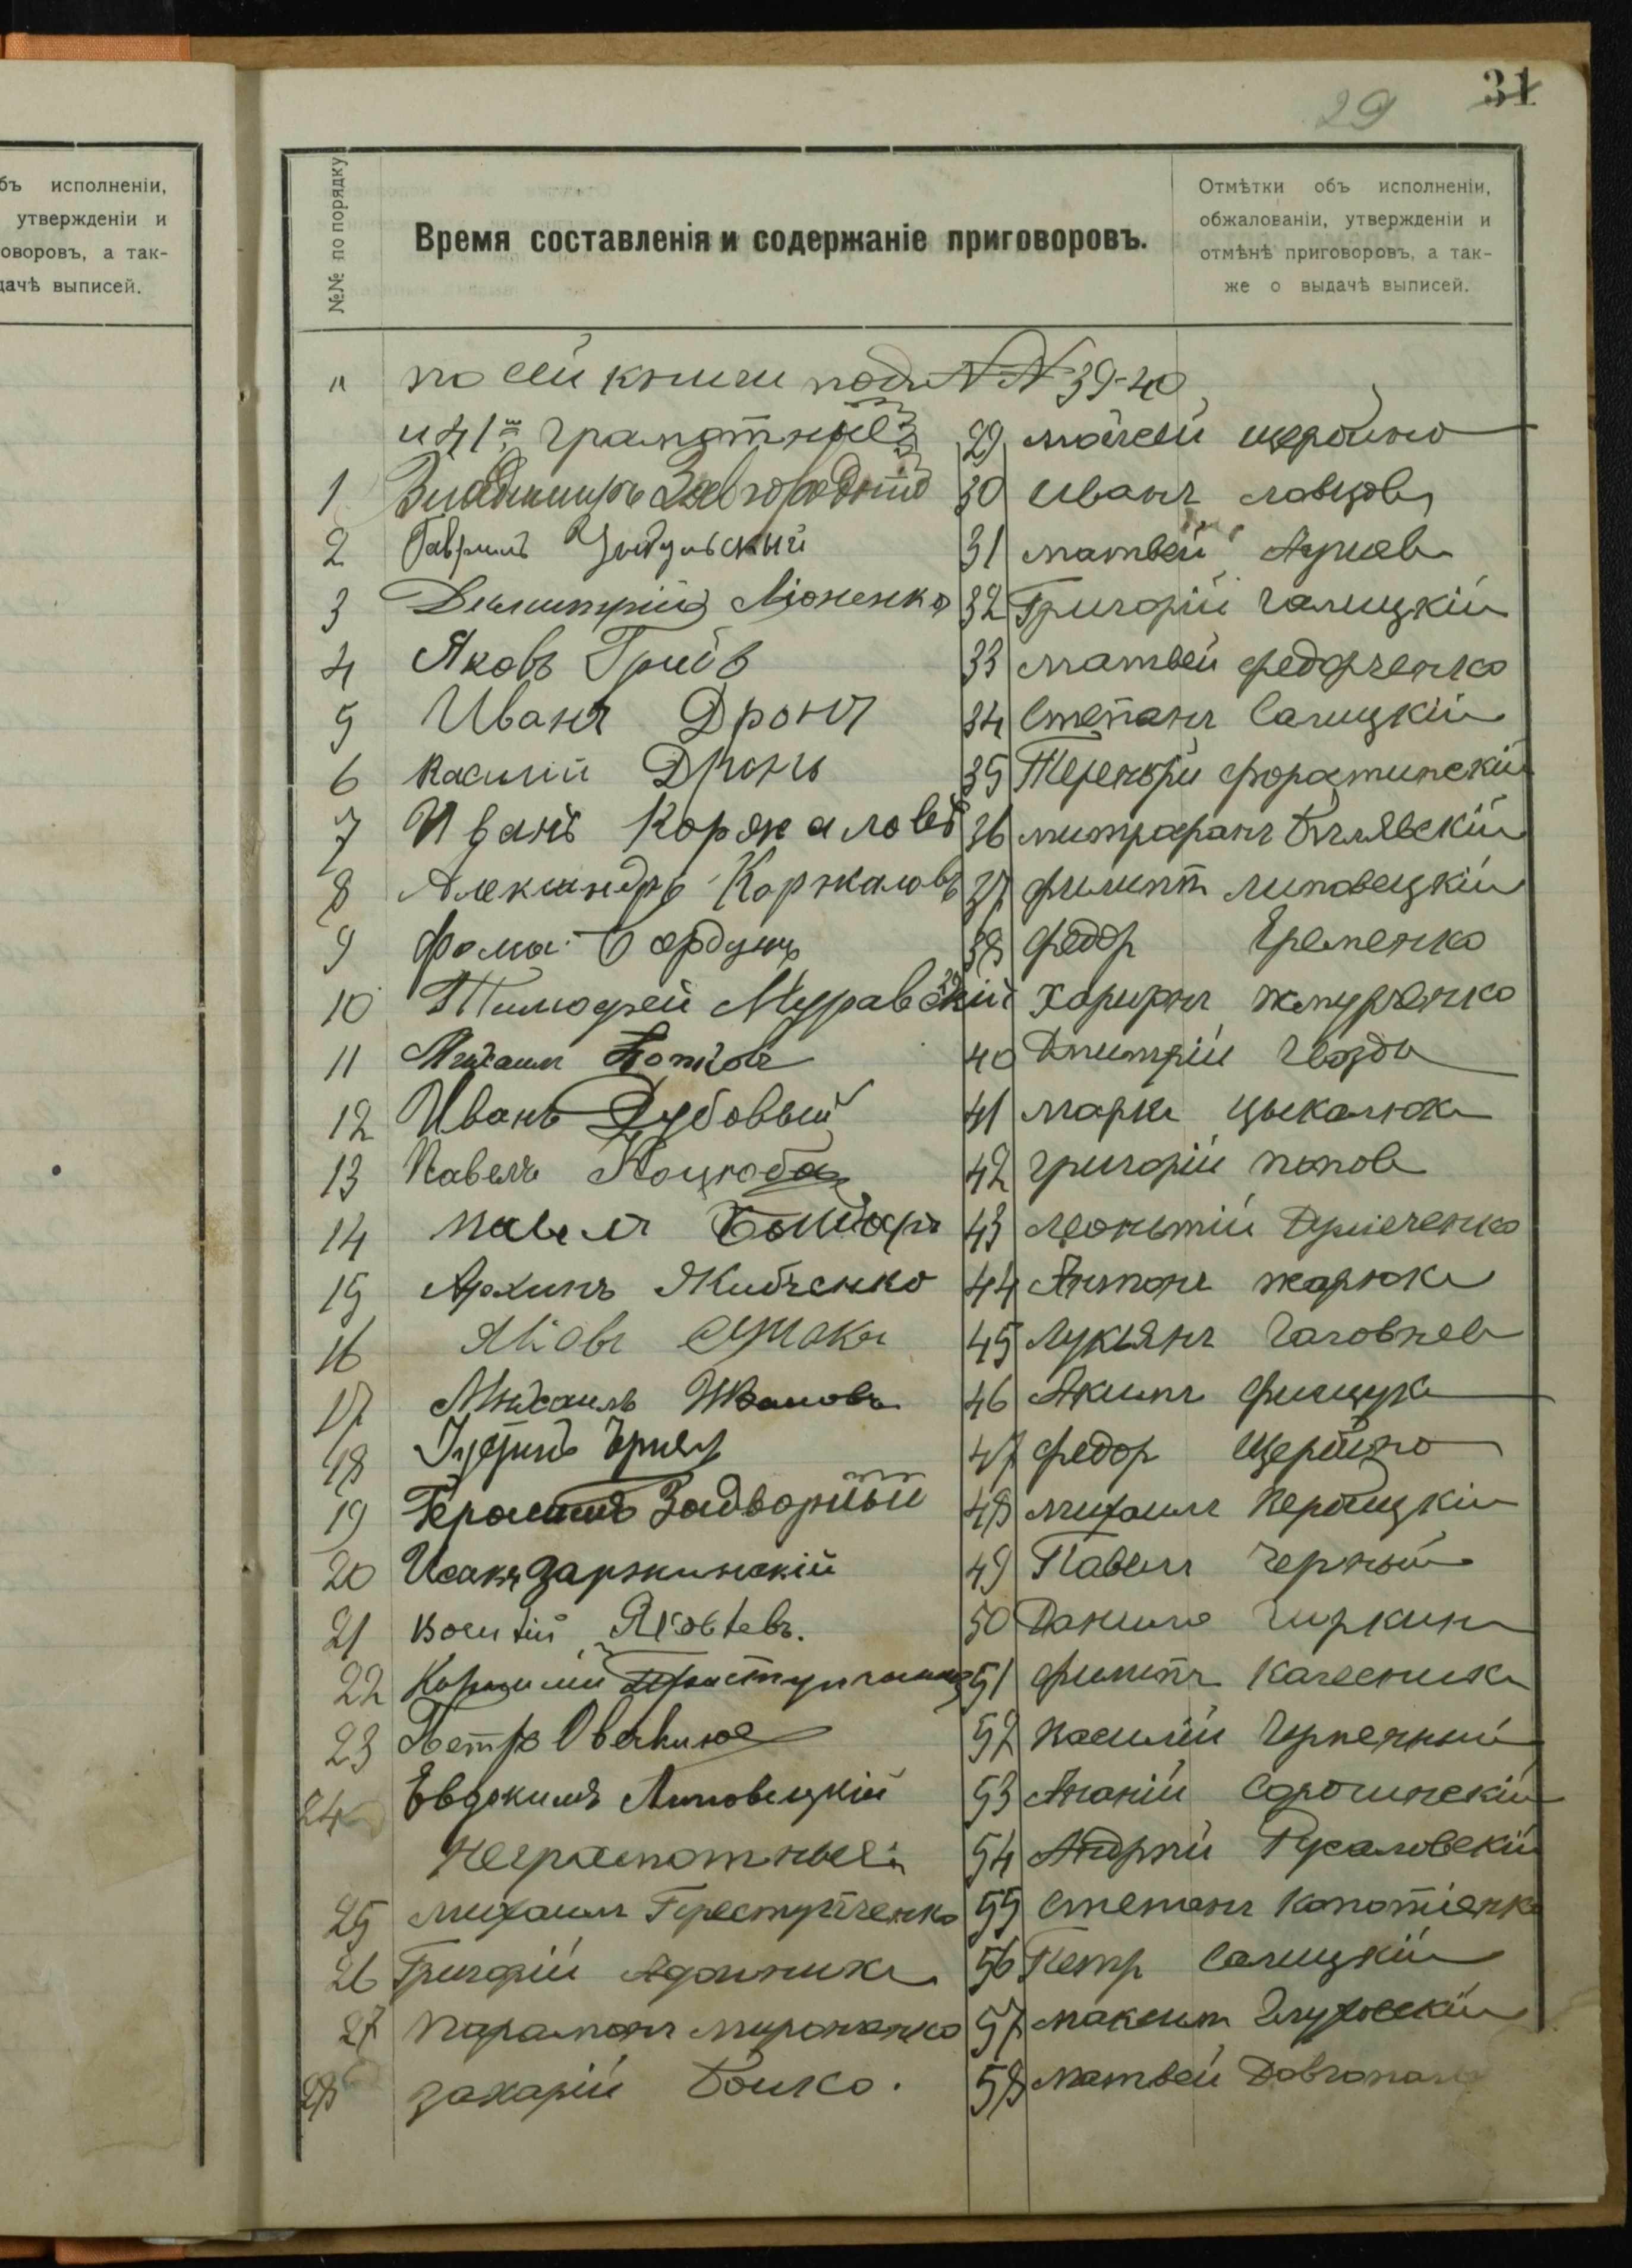 29 31
бъ исполненіи,
утвержденіи и
оворовъ, а так-
дачѣ выписей.
№№ по порядку
Время составленія и содержаніе приговоровъ.
Отмѣтки объ исполненіи,
обжалованіи, утвержденіи и
отмѣнѣ приговоровъ, а так-
же о выдачѣ выписей.
" по сей книги подъ №№ 39-40
и 41й грамотные
1 Владимиръ Завгородній
2 Гавриилъ Цыбульскый
3 Дмитрій Мороненко
4 Яковъ Грибъ
5 Иванъ Дронъ
6 Василій Дронь
7 Иванъ Коржаловъ
8 Александръ Коржаловъ
9 Фома Бордунъ
10 Тимофей Муравскій
11 Михаилъ Котковъ
12 Иванъ Дубовый
13 Павелъ Коцюба
14 Павелъ Бондарь
15 Архипъ Якибченко
16 Яковъ
17 Михаилъ Ивановъ
18
19 Герасимъ Задворный
20 Исакъ Даржинскій
21 Василій Яковлевъ.
22 Корнилій
23 Петръ
24 Евдокимъ Липовецкій
Неграмотные:
25 Михаилъ Перестугченко
26 Григорій Адамчикъ
27 Парамонъ Миронанко
28 Захарій Бойко.
29 Мойсей Щербино
30 Иванъ Ловцовъ
31 Матвей
32 Григорій Галицкій
33 Матвей Федорченко
34 Степанъ Салицкій
35 Терентій Форатинскій
36 Митрофанъ Бѣлявскій
37 Филиппъ Липовецкій
38 Федор Еременко
39 Харитон Жмурченко
40 Дмитрій Гвозда
41 Марка Цыкалюкъ
42 Григорій Поповъ
43 Леонтій Думеченко
44 Антонъ Жарюкъ
45 Лукьянъ Головневъ
46 Акимъ Фищукъ
47 Федор Щербино
48 Михаилъ Вербицкій
49 Павелъ Черный
50 Данило Чиркинъ
51 Филипъ Колесникъ
52 Василій Черпечный
53 Ананій Сорочинскій
54 Андрій Русаловскій
55 Степанъ Копотіенко
56 Петр Салицкій
57 Максим Глуховскій
58 Матвей Довгопала